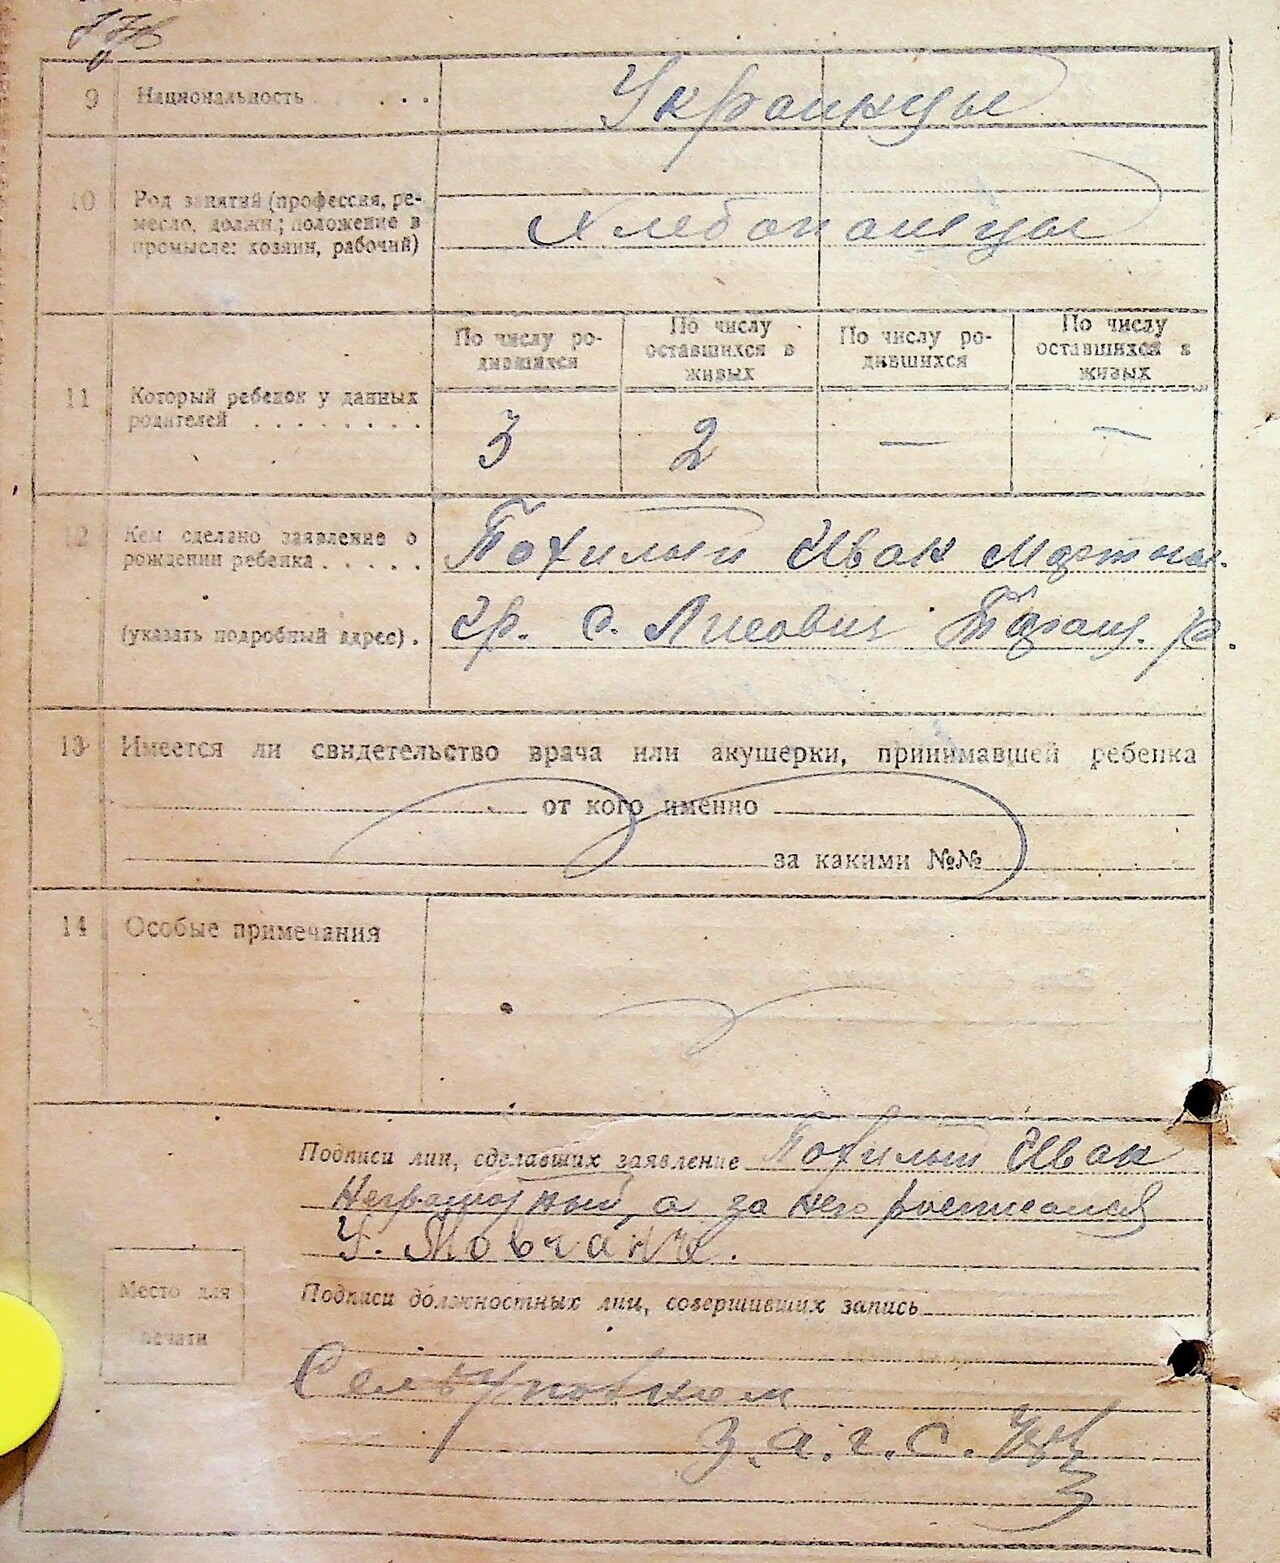 9 Национальность . . . Украинцы
10 Род занятий (профессия, ре-
месло, должн.; положение в
промысле: хозяин, рабочий)
Хлебопашцы
По числу ро-
дившихся
По числу
оставшихся в
живых
По числу ро-
дившихся
По числу
оставшихся в
живых
11 Который ребенок у данных
родителей . . . . . . . .
3 2 — —
12 Кем сделано заявление о
рождении ребенка . . . . .
Похилый Иван Мартын.
(указать подробный адрес) .
Гр. с. Лисович Таращ. р.
13 Имеется ли свидетельство врача или акушерки, принимавшей ребенка
от кого именно
за какими №№
14 Особые примечания
Подписи лиц, сделавших заявление Похилый Иван
Неграмотный, а за него росписался
Мовчан
Место для
печати
Подписи должностных лиц, совершивших запись
З.а.г.с.